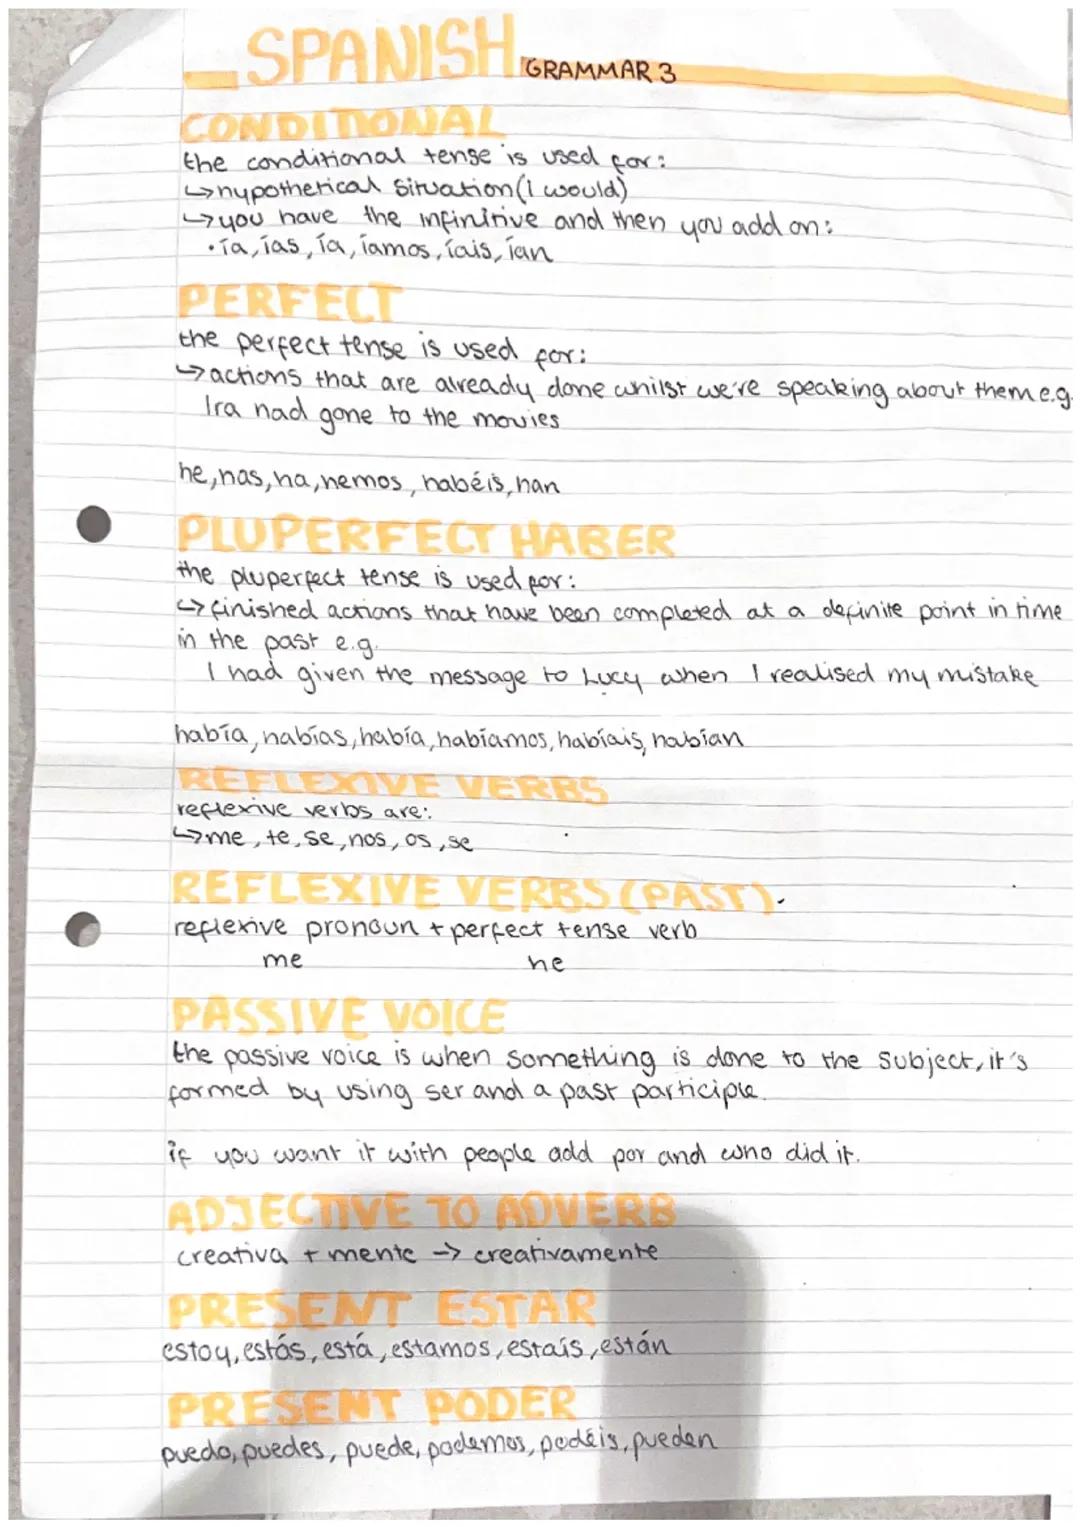 SPANISH GRAMMAR 3
CONDITIONAL
the conditional tense is used for:
↳hypothetical situation (I would)
↳you have the infinitive and then you add on:
•ía, ías, ía, íamos, íais, ían
PERFECT
the perfect tense is used for:
↳actions that are already done whilst we're speaking about them e.g.
Ira had gone to the movies
he, has, ha, hemos, habéis, han
PLUPERFECT HABER
the pluperfect tense is used for:
↳finished actions that have been completed at a definite point in time
in the past e.g.
I had given the message to Lucy when I realised my mistake
había, habías, había, habíamos, habíais, habían
REFLEXIVE VERBS
reflexive verbs are:
↳me, te, se, nos, os, se
REFLEXIVE VERBS (PAST)
reflexive pronoun + perfect tense verb
me he
PASSIVE VOICE
the passive voice is when something is done to the subject, it's
formed by using ser and a past participle.
if you want it with people add por and who did it.
ADJECTIVE TO ADVERB
creativa + mente → creativamente
PRESENT ESTAR
estoy, estás, está, estamos, estaís, están
PRESENT PODER
puedo, puedes, puede, podemos, podéis, pueden